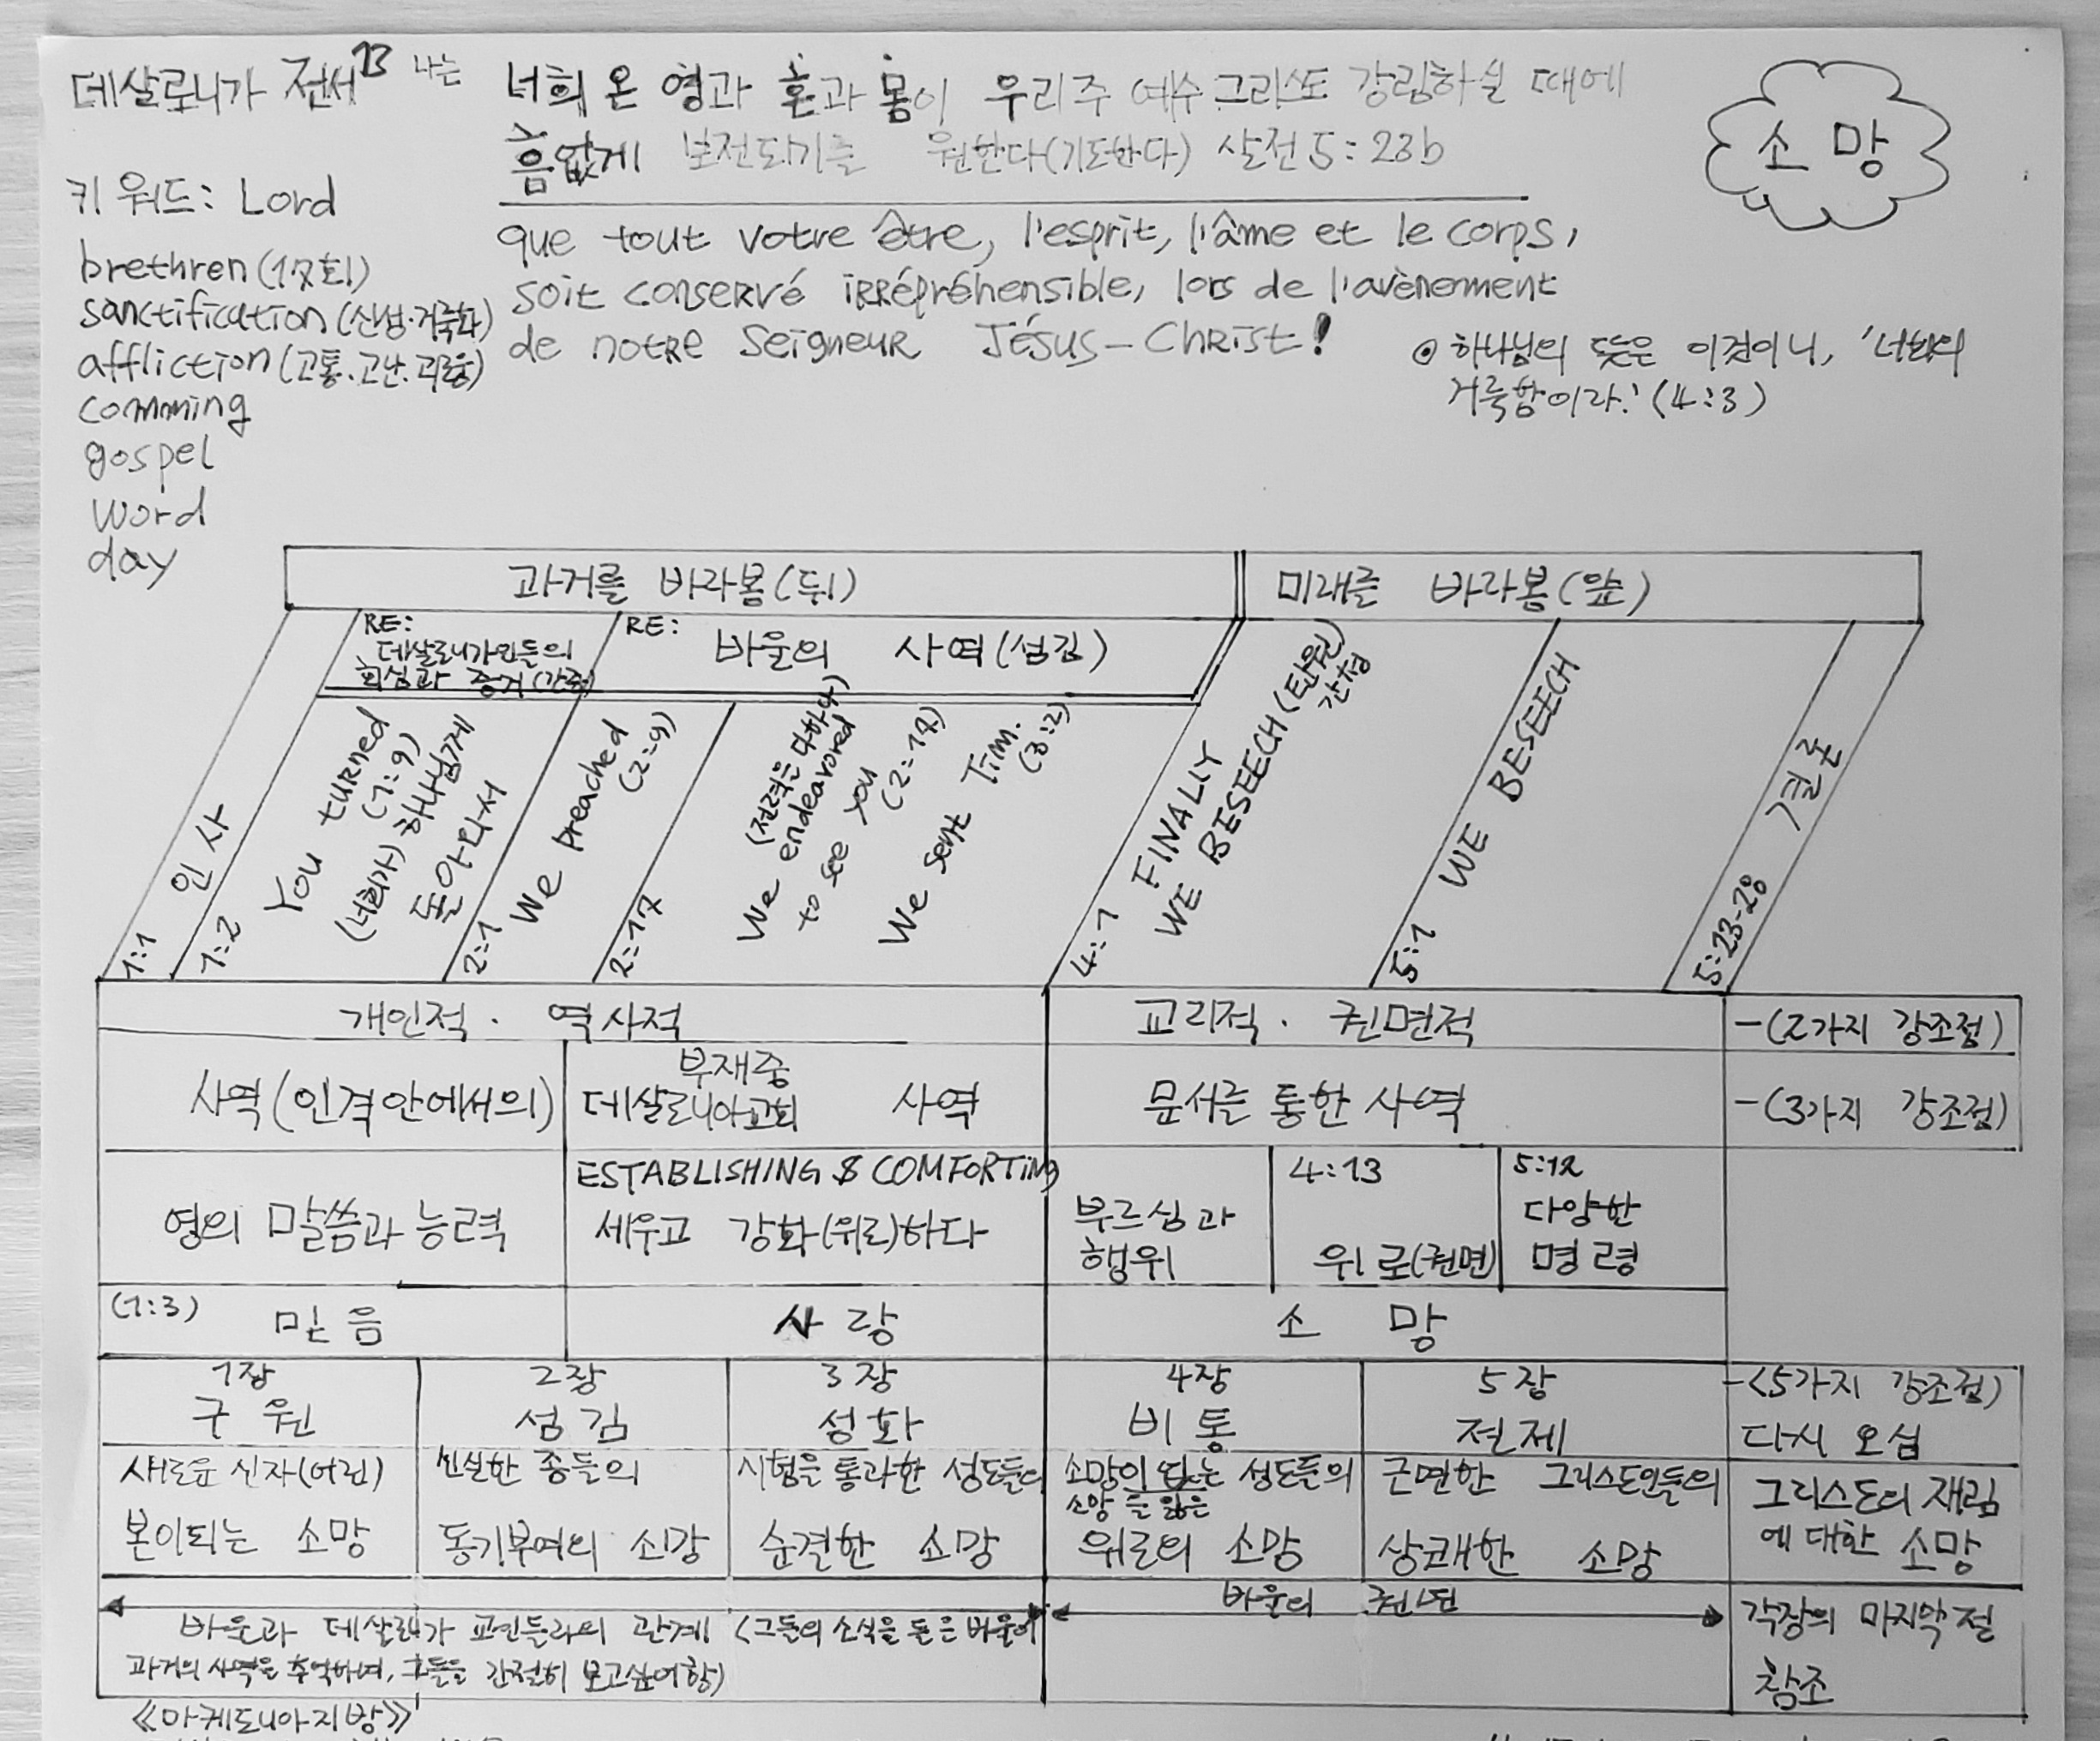 데살로니가 전서 13 나는 너희 온 영과 혼과 몸이 우리주 예수 그리스도 강림하실 때에
흠없게 보전되기를 원한다(기도한다) 살전 5:23b
소 망
키 워드: Lord
brethren (17회)
sanctification (신성·거룩화)
affliction (고통.고난.괴롭)
comming
gospel
word
day
que tout votre être, l'esprit, l'âme et le corps,
soit conservé irrépréhensible, lors de l'avènement
de notre Seigneur Jésus-Christ!
⊙ 하나님의 뜻은 이것이니, '너희의
거룩함이라.' (4:3)
과거를 바라봄(뒤)
미래를 바라봄(앞)
RE:
데살로니가인들의
회심과 증거(간증)
RE:
바울의 사역(섬김)
1:1 인 사
1:2
You turned
(1:9)
(너희가) 하나님께
돌아와서
2:1
We preached
(2:9)
2:17
(전력을 다하다)
We endeavored
to see you
(2:17)
We sent Tim.
(3:2)
4:1
FINALLY
WE BESEECH (탄원)
간청
5:1 WE BESEECH
5:23-28 결론
개인적 · 역사적
교리적 · 권면적
-(2가지 강조점)
사역(인격안에서의)
부재중
데살로니아교회 사역
문서를 통한 사역
-(3가지 강조점)
영의 말씀과 능력
ESTABLISHING & COMFORTING
세우고 강화(위로)하다
부르심과
행위
4:13
위로(권면)
5:12
다양한
명령
(1:3) 믿음
사랑
소 망
1장
구원
2장
섬김
3장
성화
4장
비통
5장
전제
-<5가지 강조점)
다시 오심
새로운 신자(어린)
본이되는 소망
신실한 종들의
동기부여의 소망
시험을 통과한 성도들의
순결한 소망
소망이 없는 성도들의
소망을 잃은
위로의 소망
근면한 그리스도인들의
상쾌한 소망
그리스도의 재림
에 대한 소망
바울과 데살로니가 교인들과의 관계 (그들의 소식을 들은 바울이
과거의 사역을 추억하며, 그들을 간절히 보고싶어함)
바울의 권면
각장의 마지막 절
참조
《마케도니아지방》